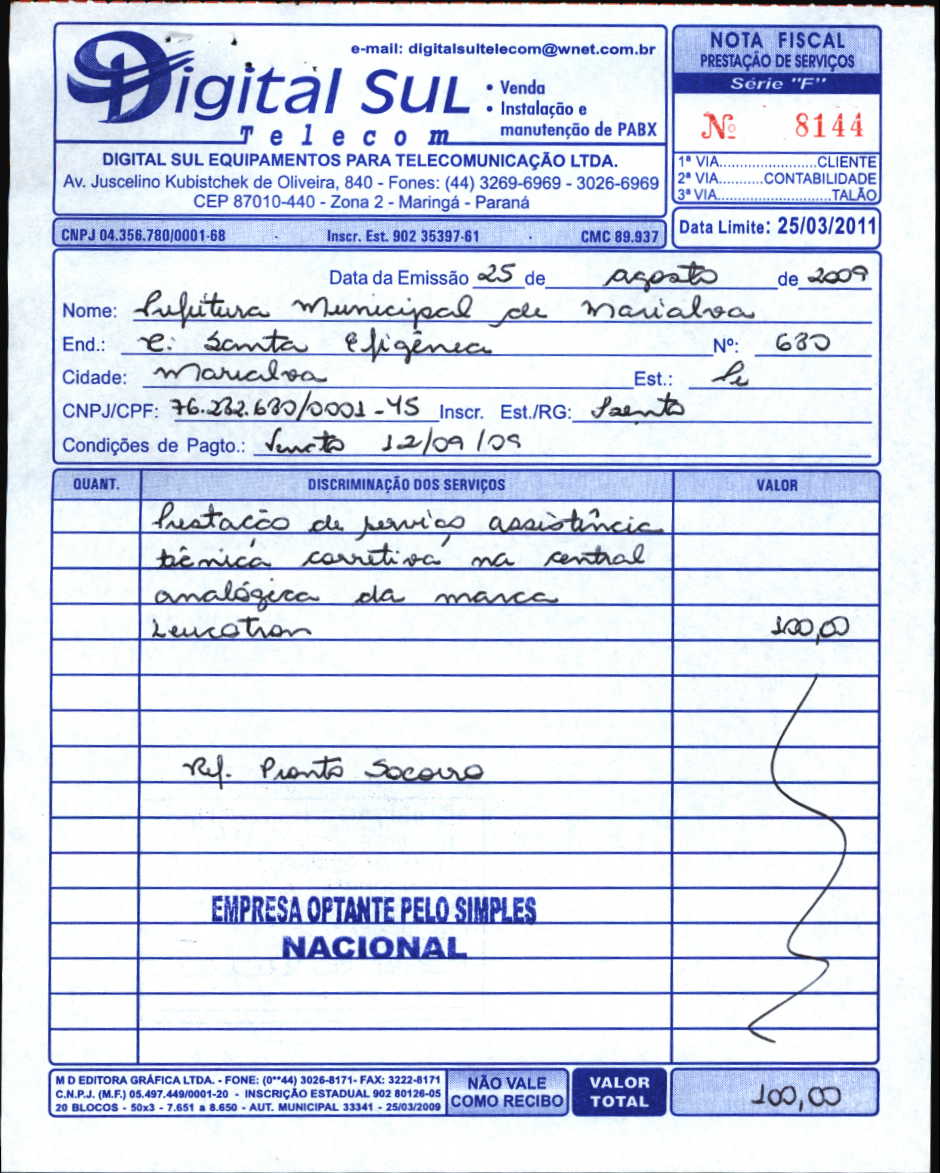 e-mail: digitalsultelecom@wnet.com.br
Digital Sul
Telecom
• Venda
• Instalação e
manutenção de PABX
DIGITAL SUL EQUIPAMENTOS PARA TELECOMUNICAÇÃO LTDA.
Av. Juscelino Kubistchek de Oliveira, 840 - Fones: (44) 3269-6969 - 3026-6969
CEP 87010-440 - Zona 2 - Maringá - Paraná
NOTA FISCAL
PRESTAÇÃO DE SERVIÇOS
Série "F"
Nº 8144
1ª VIA........................CLIENTE
2ª VIA...........CONTABILIDADE
3ª VIA............................TALÃO
CNPJ 04.356.780/0001-68 · Inscr. Est. 902 35397-61 · CMC 89.937
Data Limite: 25/03/2011
Data da Emissão 25 de agosto de 2009
Nome: Prefeitura Municipal de Marialva
End.: R: Santa Efigênea Nº: 680
Cidade: Marialva Est.: Pr
CNPJ/CPF: 76.282.680/0001-45 Inscr. Est./RG: Isento
Condições de Pagto.: Vencto 12/09/09
QUANT. DISCRIMINAÇÃO DOS SERVIÇOS VALOR
Prestação de serviço assistência
técnica corretiva na central
analógica da marca
Leucotron 100,00
Ref. Pronto Socorro
EMPRESA OPTANTE PELO SIMPLES
NACIONAL
M D EDITORA GRÁFICA LTDA. - FONE: (0**44) 3026-8171- FAX: 3222-8171
C.N.P.J. (M.F.) 05.497.449/0001-20 - INSCRIÇÃO ESTADUAL 902 80126-05
20 BLOCOS - 50x3 - 7.651 a 8.650 - AUT. MUNICIPAL 33341 - 25/03/2009
NÃO VALE
COMO RECIBO
VALOR
TOTAL
100,00